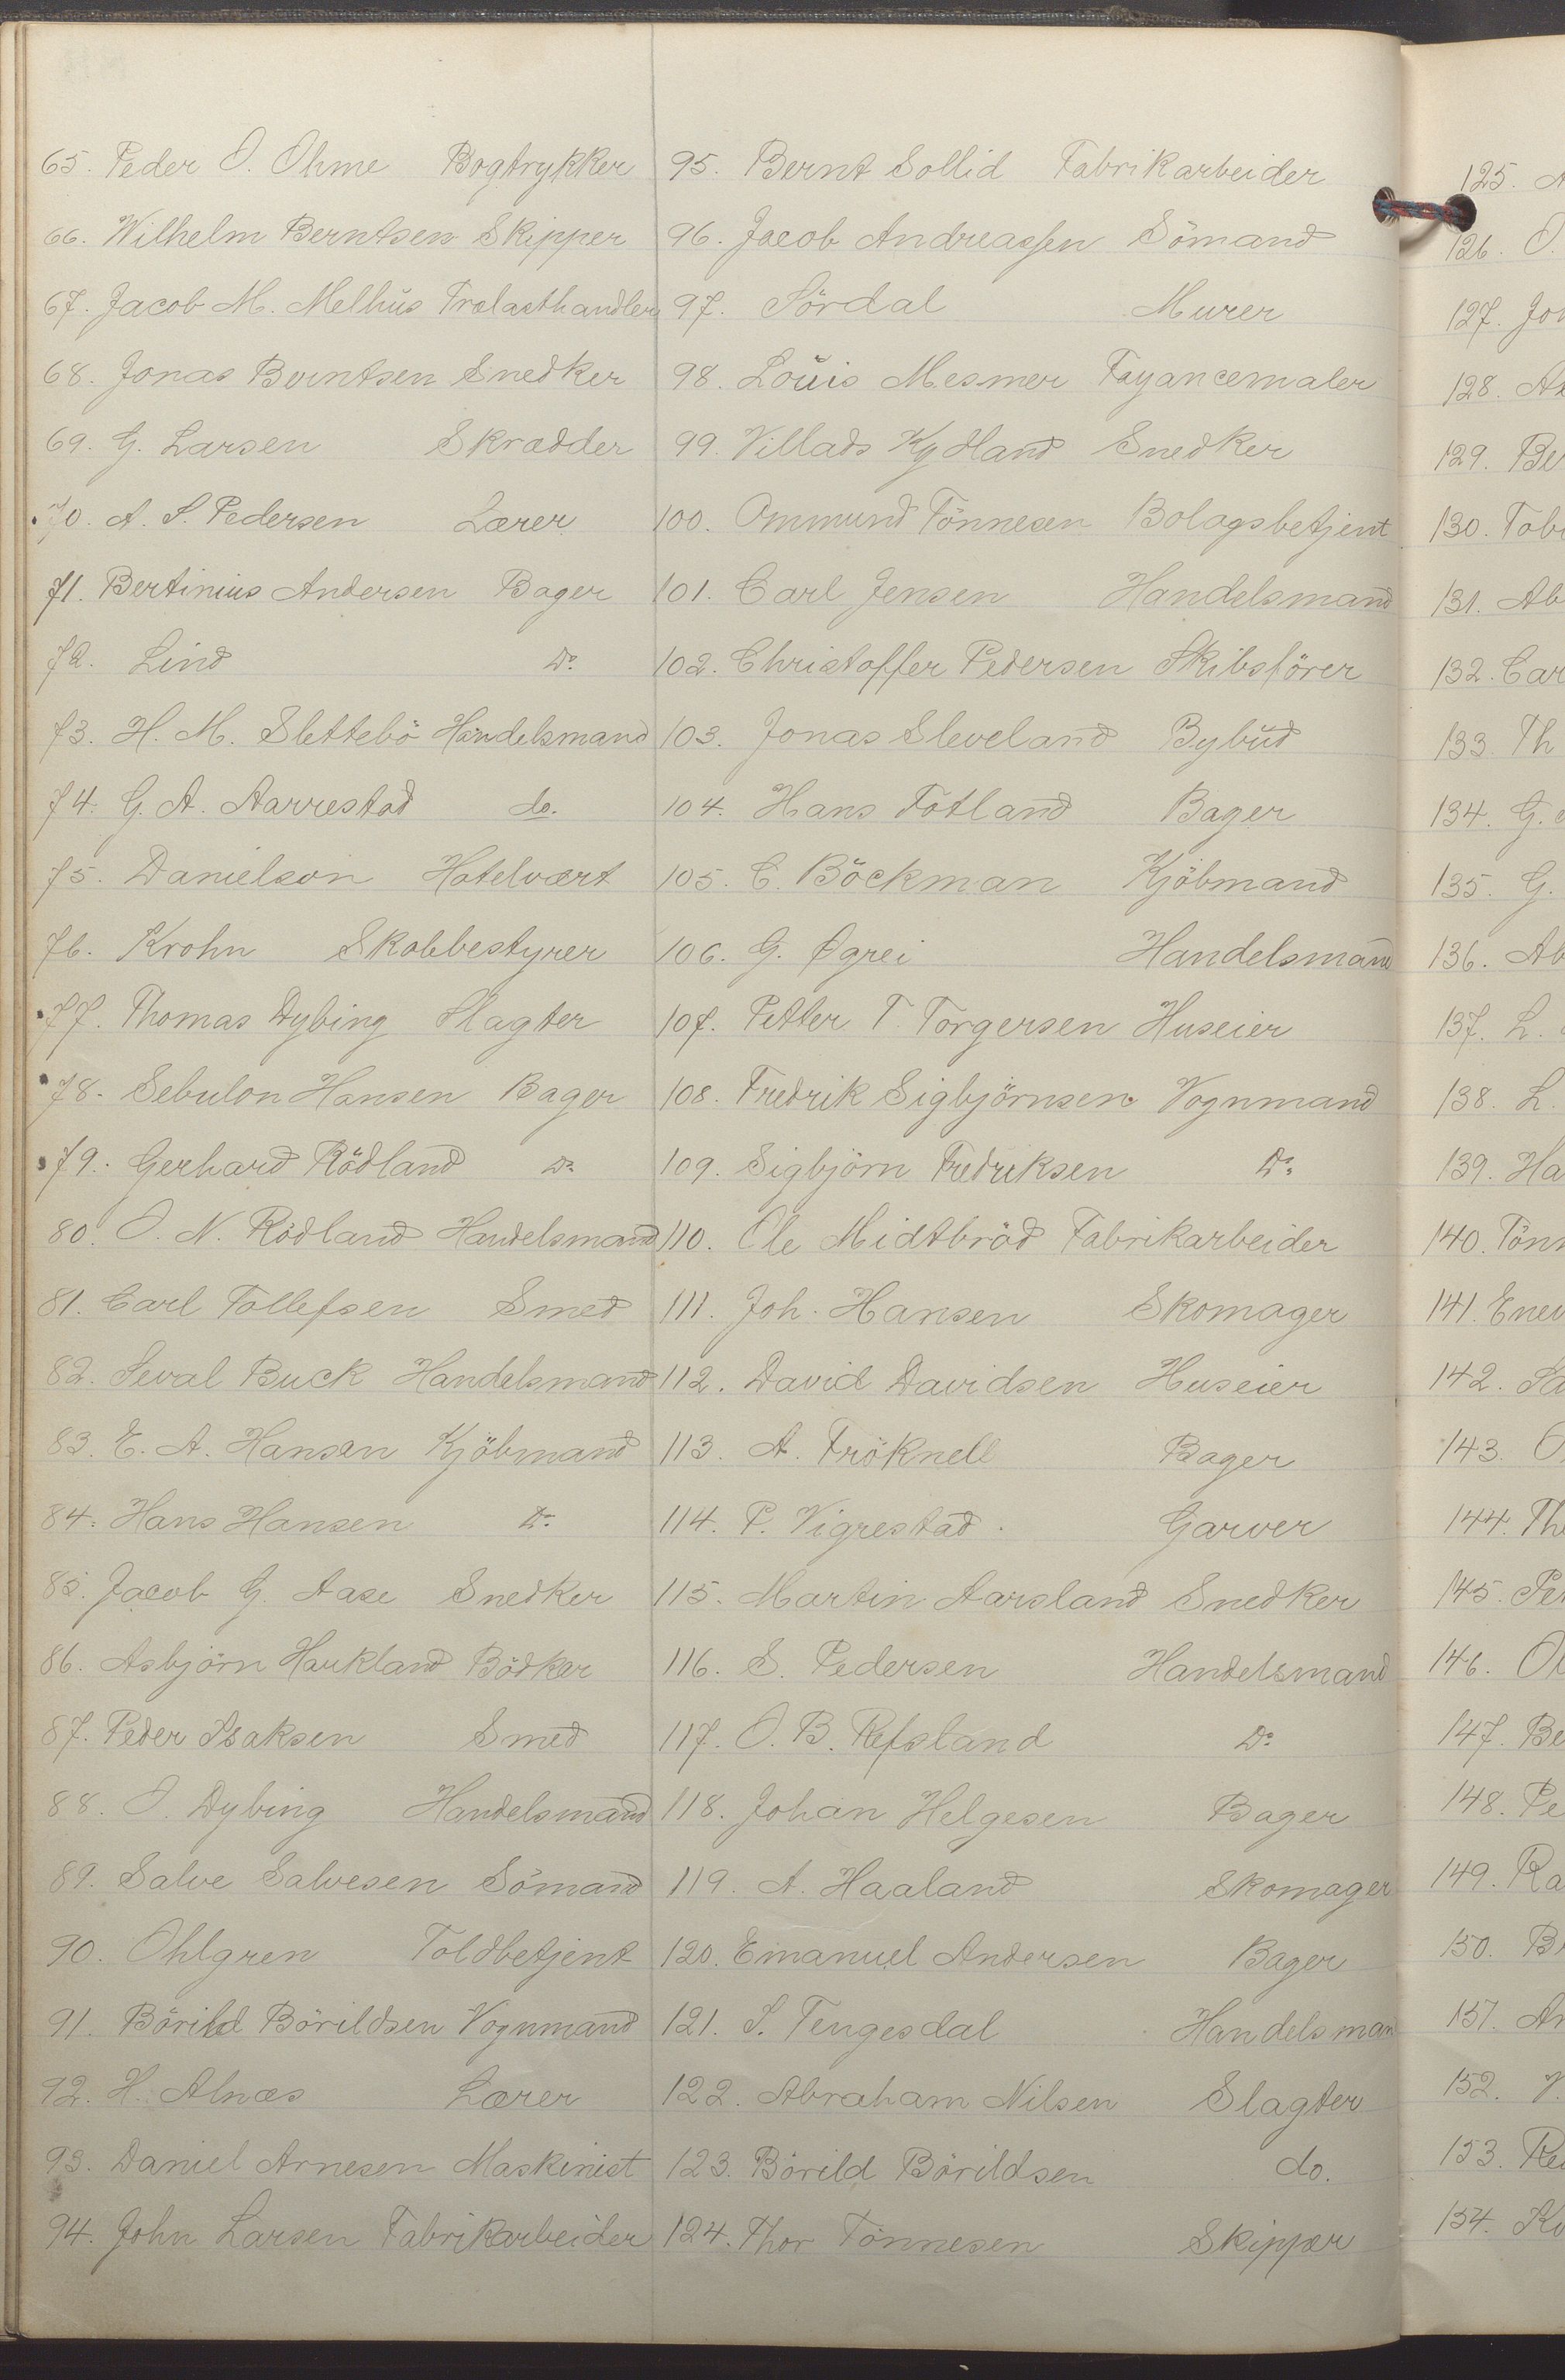 65. Peder O. Ohme Bogtrykker
66. Wilhelm Berntsen Skipper
67. Jacob M. Melhus Trælasthandler
68. Jonas Berntsen Snedker
69. G. Larsen Skrædder
70. A. S. Pedersen Lærer
71. Bertinius Andersen Bager
72. Lind Do.
73. H. M. Slettebö Handelsmand
74. G. A. Aarrestad do.
75. Danielson Hotelvært
76. Krohn Skolebestyrer
77. Thomas Dybing Slagter
78. Sebulon Hansen Bager
79. Gerhard Rödland Do.
80. O. N. Rödland Handelsmand
81. Carl Tollefsen Smed
82. Seval Buck Handelsmand
83. E. A. Hansen Kjöbmand
84. Hans Hansen Do.
85. Jacob G. Aase Snedker
86. Asbjörn Haukland Bödker
87. Peder Isaksen Smed
88. O. Dybing Handelsmand
89. Salve Salvesen Sömand
90. Ohlgren Toldbetjent
91. Börild Börildsen Vognmand
92. H. Alnæs Lærer
93. Daniel Arnesen Maskinist
94. John Larsen Fabrikarbeider
95. Bernt Sollid Fabrikarbeider
96. Jacob Andreassen Sömand
97. Sördal Murer
98. Louis Mesmer Fayancemaler
99. Villads Kydland Snedker
100. Ommund Tönnesen Bolagsbetjent
101. Carl Jensen Handelsmand
102. Christoffer Pedersen Skibsförer
103. Jonas Sleveland Bybud
104. Hans Fotland Bager
105. C. Böckman Kjöbmand
106. G. Øgrei Handelsmand
107. Petter T. Torgersen Huseier
108. Fredrik Sigbjörnsen Vognmand
109. Sigbjörn Fredriksen Do.
110. Ole Midtbröd Fabrikarbeider
111. Joh. Hansen Skomager
112. David Davidsen Huseier
113. A. Fröknell Bager
114. P. Vigrestad Garver
115. Martin Aarsland Snedker
116. S. Pedersen Handelsmand
117. O. B. Refsland Do.
118. Johan Helgesen Bager
119. A. Haaland Skomager
120. Emanuel Andersen Bager
121. S. Tengesdal Handelsman
122. Abraham Nilsen Slagter
123. Börild Börildsen do.
124. Thor Tönnesen Skipper
125. A
126. O.
127. Joh
128. An
129. Be
130. Tobi
131. Ab
132. Car
133. Th
134. G.
135. G.
136. Ab
137. L.
138. L.
139. Ha
140. Tönn
141. Enev
142.
143. O
144. Th
145. Pe
146. Ol
147. Be
148. Pe
149. Ra
150. B
151. An
152.
153.
154.